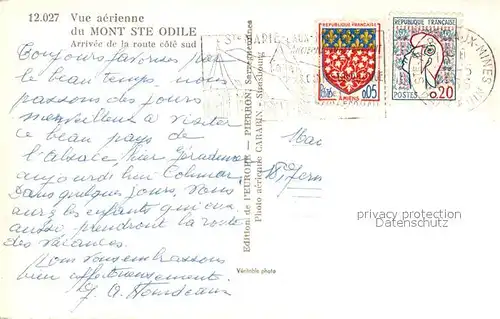 12.027 Vue aérienne
du MONT STE ODILE
Arrivée de la route côté sud
Toujours favorisés par
le beau temps nous
passons des jours
merveilleux à visiter
ce beau pays de
l'alsace, hier Gérardmer
aujourd'hui Colmar.
Dans quelques jours, vous
aurez les enfants qui eux
aussi prendront la route
des vacances.
Nous vous embrassons
bien affectueusement.
Edition de l'EUROPE — PIERRON, Sarreguemines
Photo aérienne CARABIN - Strasbourg
Véritable photo
RÉPUBLIQUE FRANÇAISE
POSTES
0,05
AMIENS
REPUBLIQUE FRANÇAISE
POSTES 0,20
AUX-MINES
protected by copyright
Datenschutz